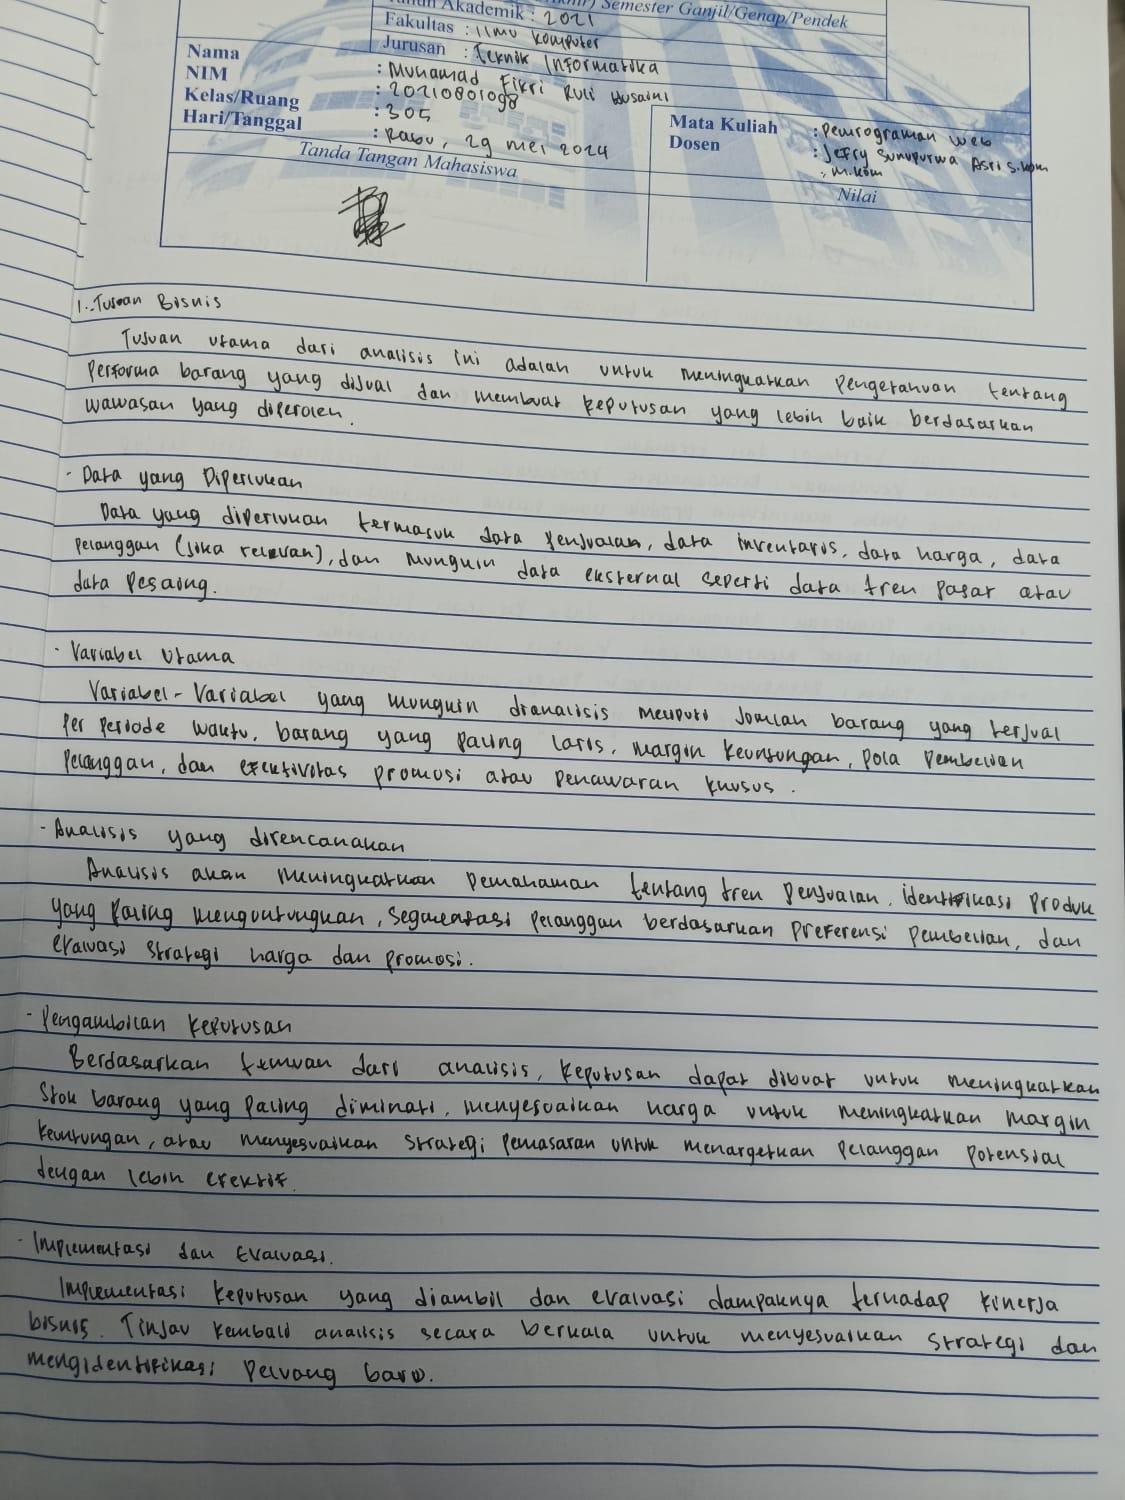 Akademik : 2021
Semester Ganjil/Genap/Pendek
Fakultas : Ilmu Komputer
Jurusan : Teknik Informatika
Nama : Muhamad Fikri Ruli Husaini
NIM : 20210801098
Kelas/Ruang : 305
Hari/Tanggal : Rabu, 29 mei 2024
Mata Kuliah : Pemrograman Web
Dosen : Jefry Sunupurwa Asri S.kom
, M.kom
Tanda Tangan Mahasiswa
Nilai
1. Tujuan Bisnis
Tujuan utama dari analisis ini adalah untuk meningkatkan pengetahuan tentang
Performa barang yang dijual dan membuat keputusan yang lebih baik berdasarkan
wawasan yang diperoleh.
- Data yang Diperlukan
Data yang diperlukan termasuk data penjualan, data inventaris, data harga, data
pelanggan (jika relevan), dan mungkin data eksternal seperti data tren pasar atau
data pesaing.
- Variabel Utama
Variabel-Variabel yang mungkin dianalisis meliputi Jumlah barang yang terjual
Per Periode waktu, barang yang paling laris, margin keuntungan, pola pembelian
Pelanggan, dan efektivitas promosi atau penawaran khusus.
- Analisis yang direncanakan
Analisis akan meningkatkan pemahaman tentang tren penjualan, identifikasi produk
yang paling menguntungkan, segmentasi pelanggan berdasarkan preferensi pembelian, dan
evaluasi strategi harga dan promosi.
- Pengambilan keputusan
Berdasarkan temuan dari analisis, keputusan dapat dibuat untuk meningkatkan
Stok barang yang paling diminati, menyesuaikan harga untuk meningkatkan margin
keuntungan, atau menyesuaikan strategi pemasaran untuk menargetkan pelanggan potensial
dengan lebih efektif.
- Implementasi dan Evaluasi.
Implementasi keputusan yang diambil dan evaluasi dampaknya terhadap kinerja
bisnis. Tinjau kembali analisis secara berkala untuk menyesuaikan strategi dan
mengidentifikasi peluang baru.